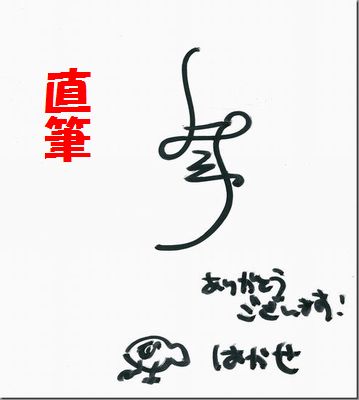 直筆
ありがとう
ございます!
はかせ